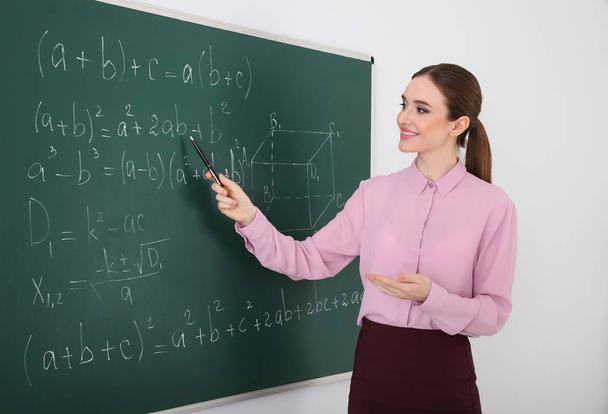 (a + b) + c = a(b + c)
(a+b)² = a² + 2ab + b²
a³ - b³ = (a-b)(a² + b²)
D₁ = k² - ac
x₁,₂ = (-k ± √D₁) / a
(a + b + c)² = a² + b² + c² + 2ab + 2bc + 2ac
B₁ C₁
A₁ D₁
B C